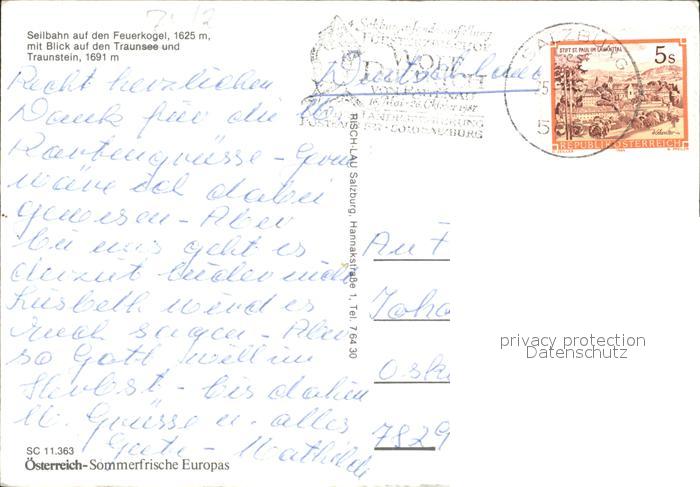 Seilbahn auf den Feuerkogel, 1625 m,
mit Blick auf den Traunsee und
Traunstein, 1691 m
Recht herzlichen
Dank für die lb.
Kartengrüsse - Gern
wäre ich dabei
gewesen - Aber
bei uns geht es
derzeit leider nicht
Lisbeth wird es
Euch sagen - Aber
so Gott will im
Herbst - bis dahin
lb. Grüsse u. alles
Gute - Mathilde
SC 11.363
Österreich-Sommerfrische Europas
RISCH-LAU Salzburg, Hannakstraße 1, Tel. 7 64 30
Salzburger Landesausstellung
WOLF
DIETRICH
VON RAITENAU
16. Mai - 26. Oktober 1987
SALZBURG
STIFT ST. PAUL IM LAVANTTAL
5 s
REPUBLIK ÖSTERREICH
An F
Joha
Oska
7829
privacy protection
Datenschutz